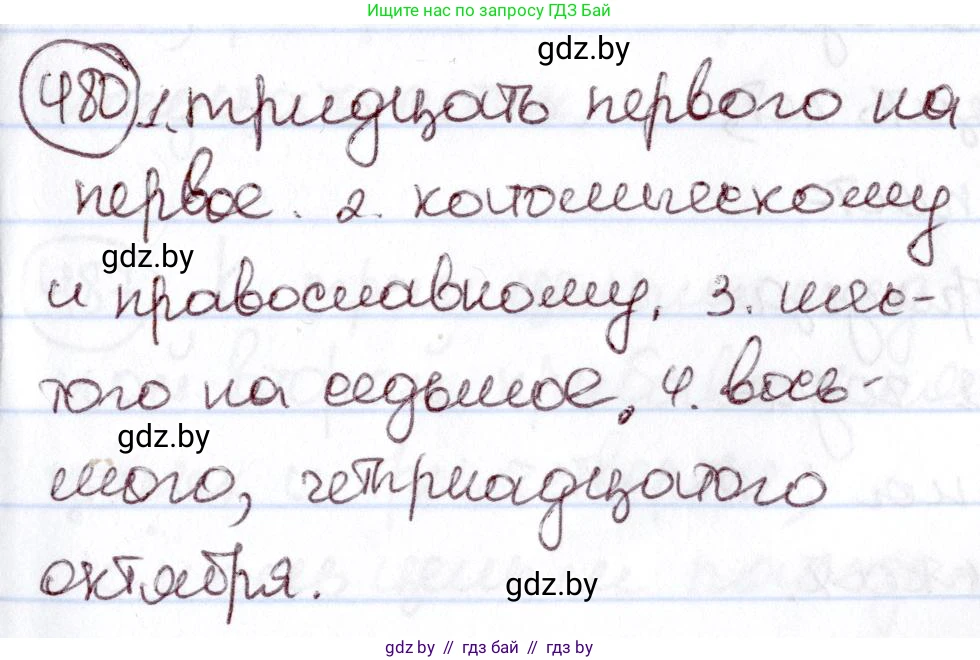 Ищите нас по запросу ГДЗ Бай
gdz.by
480 1. тридцать первого на
первое. 2. католическому
gdz.by
и православному. 3. шес-
того на седьмое. 4. вось-
gdz.by
мого, четрнадцатого
октября.
gdz.by
gdz.by // гдз бай // gdz.by